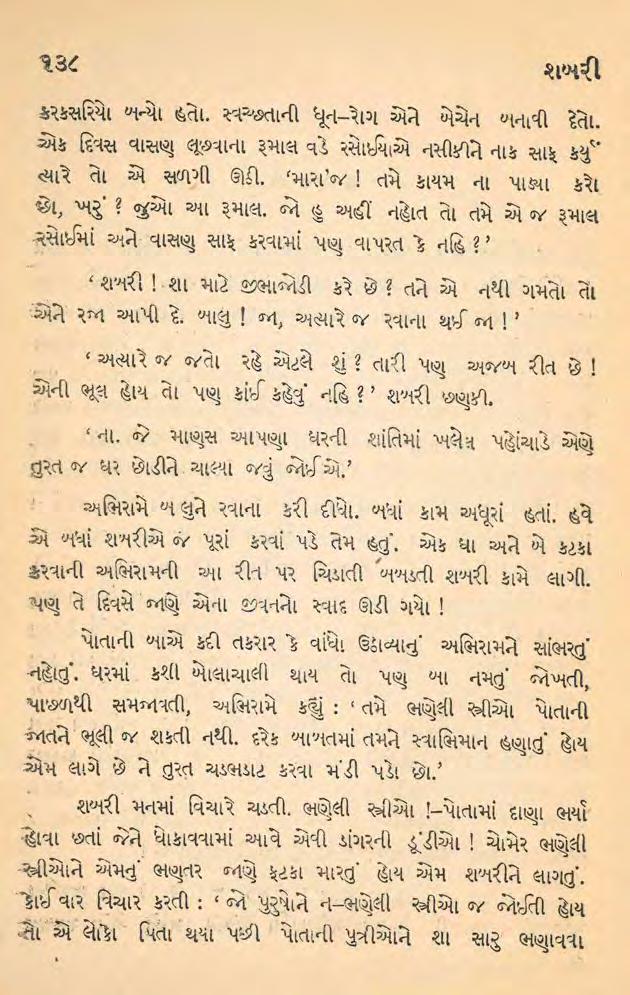 ૧૩૮ શબરી
કરકસરિયો બન્યો હતો. સ્વચ્છતાની ધૂન–રોગ એને બેચેન બનાવી દેતો.
એક દિવસ વાસણ લૂછવાના રૂમાલ વડે રસોઈયાએ નસીકીને નાક સાફ કર્યું
ત્યારે તો એ સળગી ઊઠી. ‘મારા’જ ! તમે કાયમ ના પાડ્યા કરો
છો, ખરું ? જુઓ આ રૂમાલ. જો હુ અહીં નહોત તો તમે એ જ રૂમાલ
રસોઈમાં અને વાસણ સાફ કરવામાં પણ વાપરત કે નહિ ?’
‘ શબરી ! શા માટે જીભાજોડી કરે છે ? તને એ નથી ગમતો તો
એને રજા આપી દે. બાલુ ! જા, અત્યારે જ રવાના થઈ જા ! ’
‘ અત્યારે જ જતો રહે એટલે શું ? તારી પણ અજબ રીત છે !
એની ભૂલ હોય તો પણ કાંઈ કહેવું નહિ ? ’ શબરી છણકી.
‘ ના. જે માણસ આપણા ઘરની શાંતિમાં ખલેલ પહોંચાડે એણે
તુરત જ ઘર છોડીને ચાલ્યા જવું જોઈએ.’
અભિરામે બ લુને રવાના કરી દીધો. બધાં કામ અધૂરાં હતાં. હવે
એ બધાં શબરીએ જ પૂરાં કરવાં પડે તેમ હતું. એક ઘા અને બે કટકા
કરવાની અભિરામની આ રીત પર ચિડાતી બબડતી શબરી કામે લાગી.
પણ તે દિવસે જાણે એના જીવનનો સ્વાદ ઊડી ગયો !
પોતાની બાએ કદી તકરાર કે વાંધો ઉઠાવ્યાનું અભિરામને સાંભરતું
નહોતું. ઘરમાં કશી બોલાચાલી થાય તો પણ બા નમતું જોખતી,
પાછળથી સમજાવતી, અભિરામે કહ્યું : ‘ તમે ભણેલી સ્ત્રીઓ પોતાની
જાતને ભૂલી જ શકતી નથી. દરેક બાબતમાં તમને સ્વાભિમાન હણાતું હોય
એમ લાગે છે ને તુરત ચડભડાટ કરવા મંડી પડો છો.’
શબરી મનમાં વિચારે ચડતી. ભણેલી સ્ત્રીઓ !–પોતામાં દાણા ભર્યા
હોવા છતાં જેને ધોકાવવામાં આવે એવી ડાંગરની ડૂંડીઓ ! ચોમેર ભણેલી
સ્ત્રીઓને એમનું ભણતર જાણે ફટકા મારતું હોય એમ શબરીને લાગતું.
કોઈ વાર વિચાર કરતી : ‘ જો પુરુષોને ન–ભણેલી સ્ત્રીઓ જ જોઈતી હોય
તો એ લોકો પિતા થયા પછી પોતાની પુત્રીઓને શા સારુ ભણાવવા